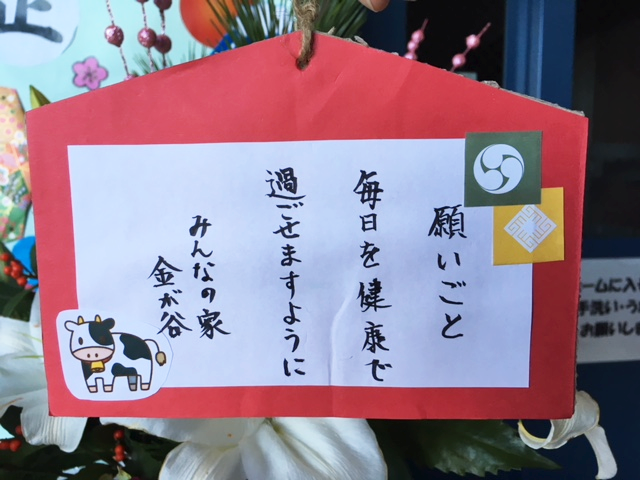 正
願いごと
毎日を健康で
過ごせますように
みんなの家
金が谷
ームに入
手洗いう
お願いし